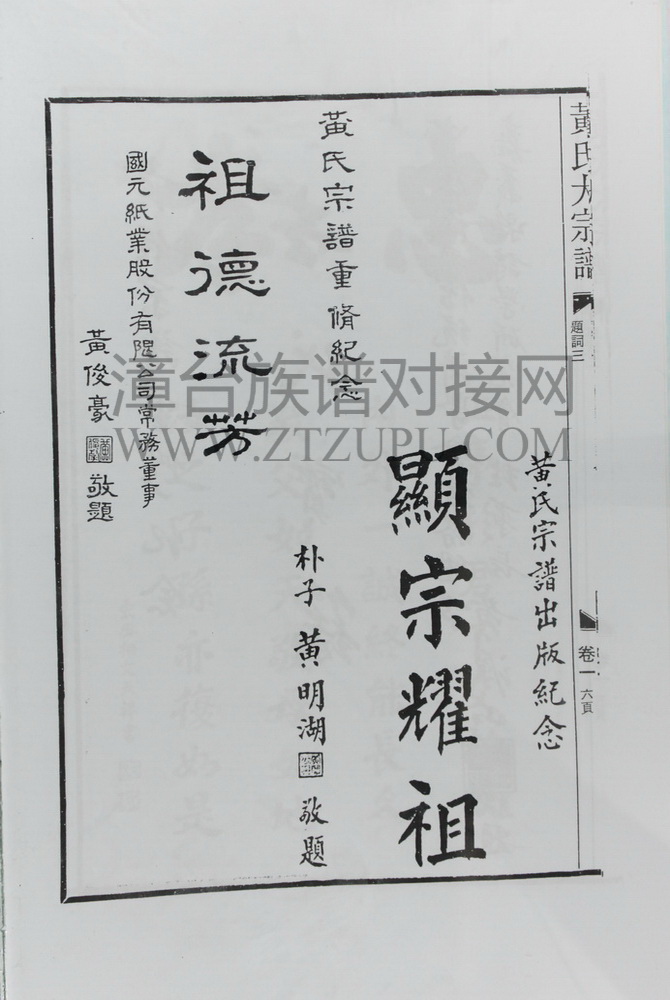 黃氏大宗譜
題詞三
卷一
六頁
黃氏宗譜出版紀念
顯宗耀祖
朴子 黃明湖 敬題
黃氏宗譜重脩紀念
祖德流芳
國元紙業股份有限公司常務董事
黃俊豪 敬題
漳台族谱对接网
WWW.ZTZUPU.COM